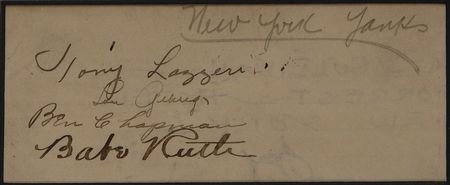 New York Yanks
Tony Lazzeri
Lou Gehrig
Ben Chapman
Babe Ruth